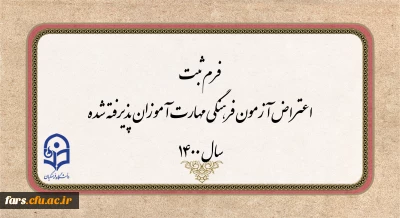 فرم ثبت
اعتراض آزمون فرهنگی مهارت آموزان پذیرفته شده
سال ۱۴۰۰
دانشگاه فرهنگیان
fars.cfu.ac.ir